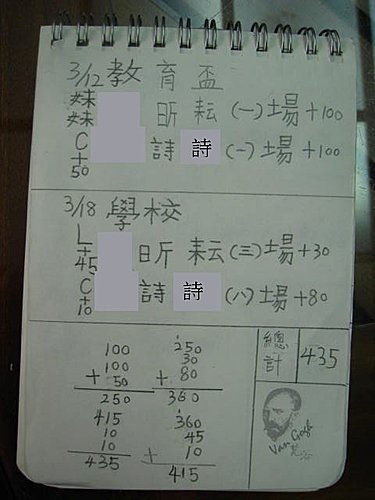 3/12 教育盃
妹妹 昕耘 (一)場 +100
C+50 詩詩 (一)場 +100
3/18 學校
L+45 昕耘 (三)場 +30
C+10 詩詩 (八)場 +80
100
100
+ 50
250
250
30
+ 80
360
415
10
10
435
360
45
+ 10
415
總計 435
Van Gogh